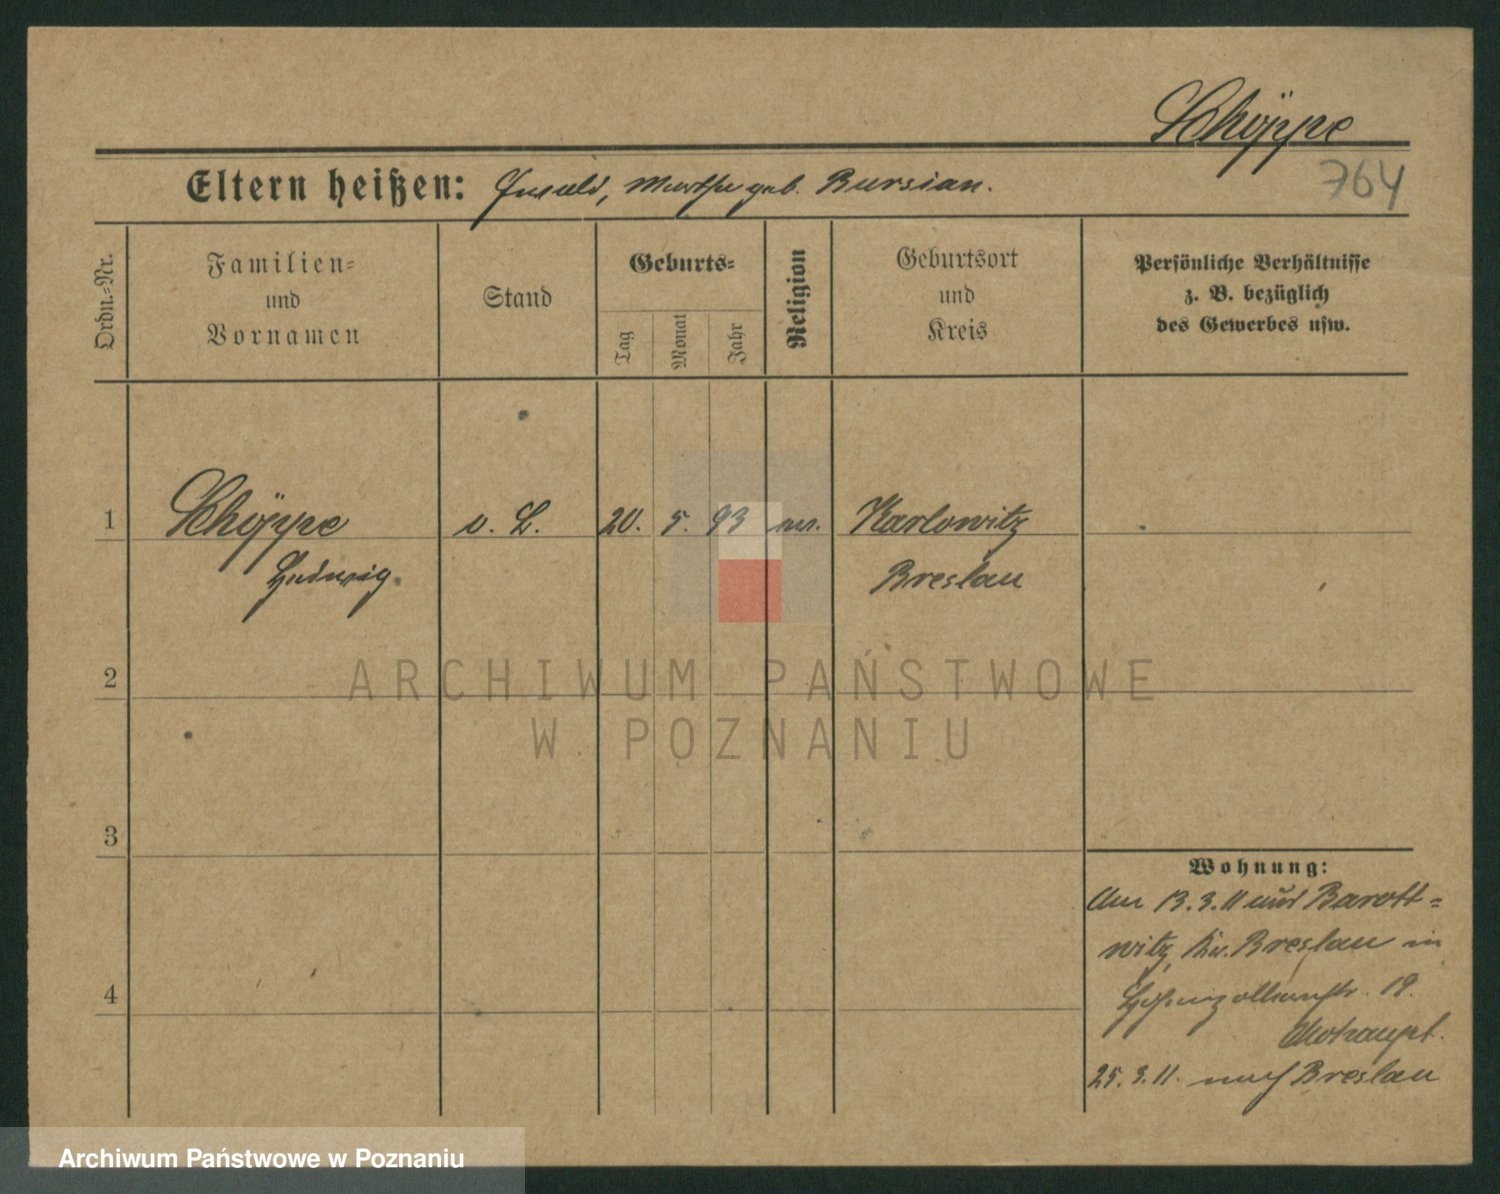 Schöppe
764
Eltern heißen: Ewald, Martha geb. Bursian.
Ordn.-Nr.
Familien-
und
Vornamen
Stand
Geburts-
Tag
Monat
Jahr
Religion
Geburtsort
und
Kreis
Persönliche Verhältnisse
z. B. bezüglich
des Gewerbes usw.
1
Schöppe
Hedwig.
o. B.
20. 5. 93
Karlowitz
Breslau
2
3
4
ARCHIWUM PAŃSTWOWE
W POZNANIU
Wohnung:
Am 13.3.11 aus Barott-
witz, Kr. Breslau in
Hohenzollernstr. 19.
25.3.11. nach Breslau
Archiwum Państwowe w Poznaniu